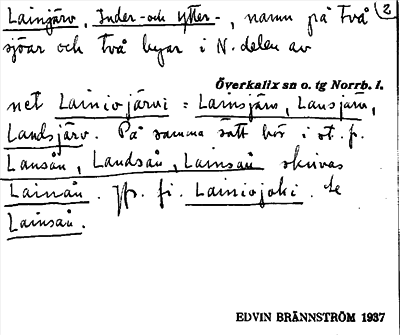 Lainjärv, Inder- och Ytter-, namn på två (2
sjöar och två byar i N. delen av
Överkalix sn o. tg Norrb. l.
net Lainiojärvi = Lainsjärv, Lansjärv,
Landsjärv. På samma sätt bör i st. f.
Lansån, Landsån, Lainsån skrivas
Lainån. Jfr. fi. Lainiojoki. Se
Lainsån.
EDVIN BRÄNNSTRÖM 1937